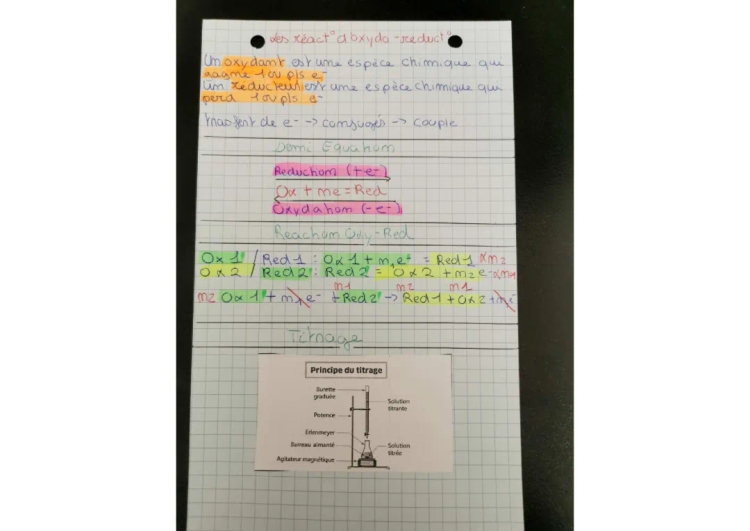 Les réact° d'oxydo-reduct°
Un oxydant est une espèce chimique qui
gagne 1 ou pls e-
Un réducteur est une espèce chimique qui
perd 1 ou pls e-
Transfert de e- -> conjugués -> couple
Demi Equation
Reduction (+e-)
Ox + ne = Red
Oxydation (-e-)
Reaction Oxy-Red
Ox 1 / Red 1 : Ox 1 + n1 e- = Red 1 x n2
Ox 2 / Red 2 : Red 2 = Ox 2 + n2 e- x n1
n1 n2 n1
n2 Ox 1 + n1 e- + Red 2 -> Red 1 + Ox 2 +
Titrage
Principe du titrage
Burette
graduée
Solution
titrante
Potence
Erlenmeyer
Barreau aimanté
Solution
titrée
Agitateur magnétique